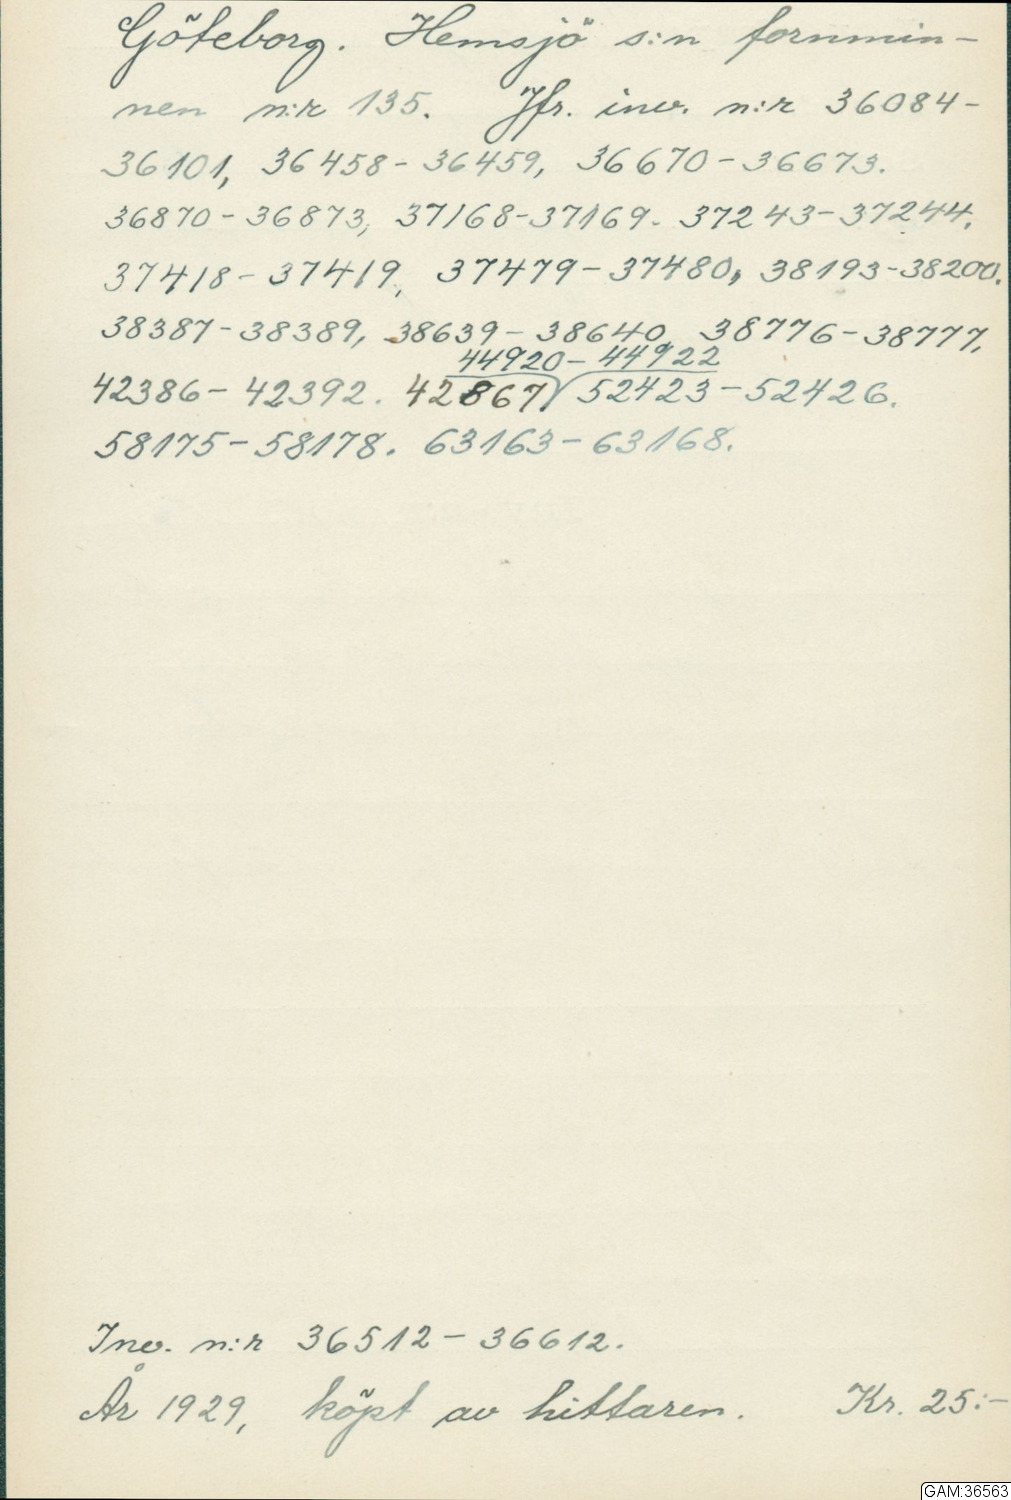 Göteborg. Hemsjö s:n fornmin-
nen n:r 135. Jfr. inv. n:r 36084-
36101, 36458-36459, 36670-36673.
36870-36873, 37168-37169. 37243-37244.
37418-37419, 37479-37480, 38193-38200.
38387-38389, 38639-38640 38776-38777,
44920-44922
42386-42392. 42867 52423-52426.
58175-58178. 63163-63168.
Inv. n:r 36512-36612.
År 1929, köpt av hittaren. Kr. 25:-
GAM:36563